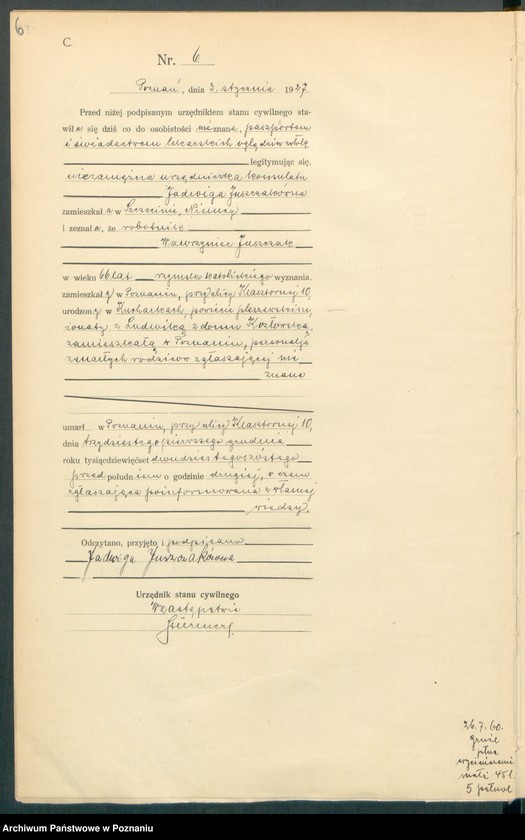 6
C.
Nr. 6
Poznań, dnia 3. stycznia 1927
Przed niżej podpisanym urzędnikiem stanu cywilnego sta-
wiła się dziś co do osobistości nieznana, paszportem
i świadectwem lekarskich oględzin zwłok
legitymując się,
niezamężna urzędniczka konsulatu
Jadwiga Juszczakówna
zamieszkała w Szczecinie, Niemcy
i zeznała, że robotnik
Wawrzyniec Juszczak
w wieku 66 lat rzymsko katolickiego wyznania,
zamieszkały w Poznaniu, przy ulicy Klasztornej 10,
urodzony w Kucharkach, powiecie pleszewskim,
żonaty z Ludwiką z domu Kozłowską,
zamieszkałą w Poznaniu, personalja
zmarłych rodziców zgłaszającej nie
znane
umarł w Poznaniu, przy ulicy Klasztornej 10,
dnia trzydziestego pierwszego grudnia
roku tysiącdziewięćset dwudziestegoszóstego
przed południem o godzinie drugiej, o czem
zgłaszająca poinformowana z własnej
wiedzy.
Odczytano, przyjęto i podpisano
Jadwiga Juszczakówna
Urzędnik stanu cywilnego
W zastępstwie
26.7.60.
płuc
5 połud
Archiwum Państwowe w Poznaniu